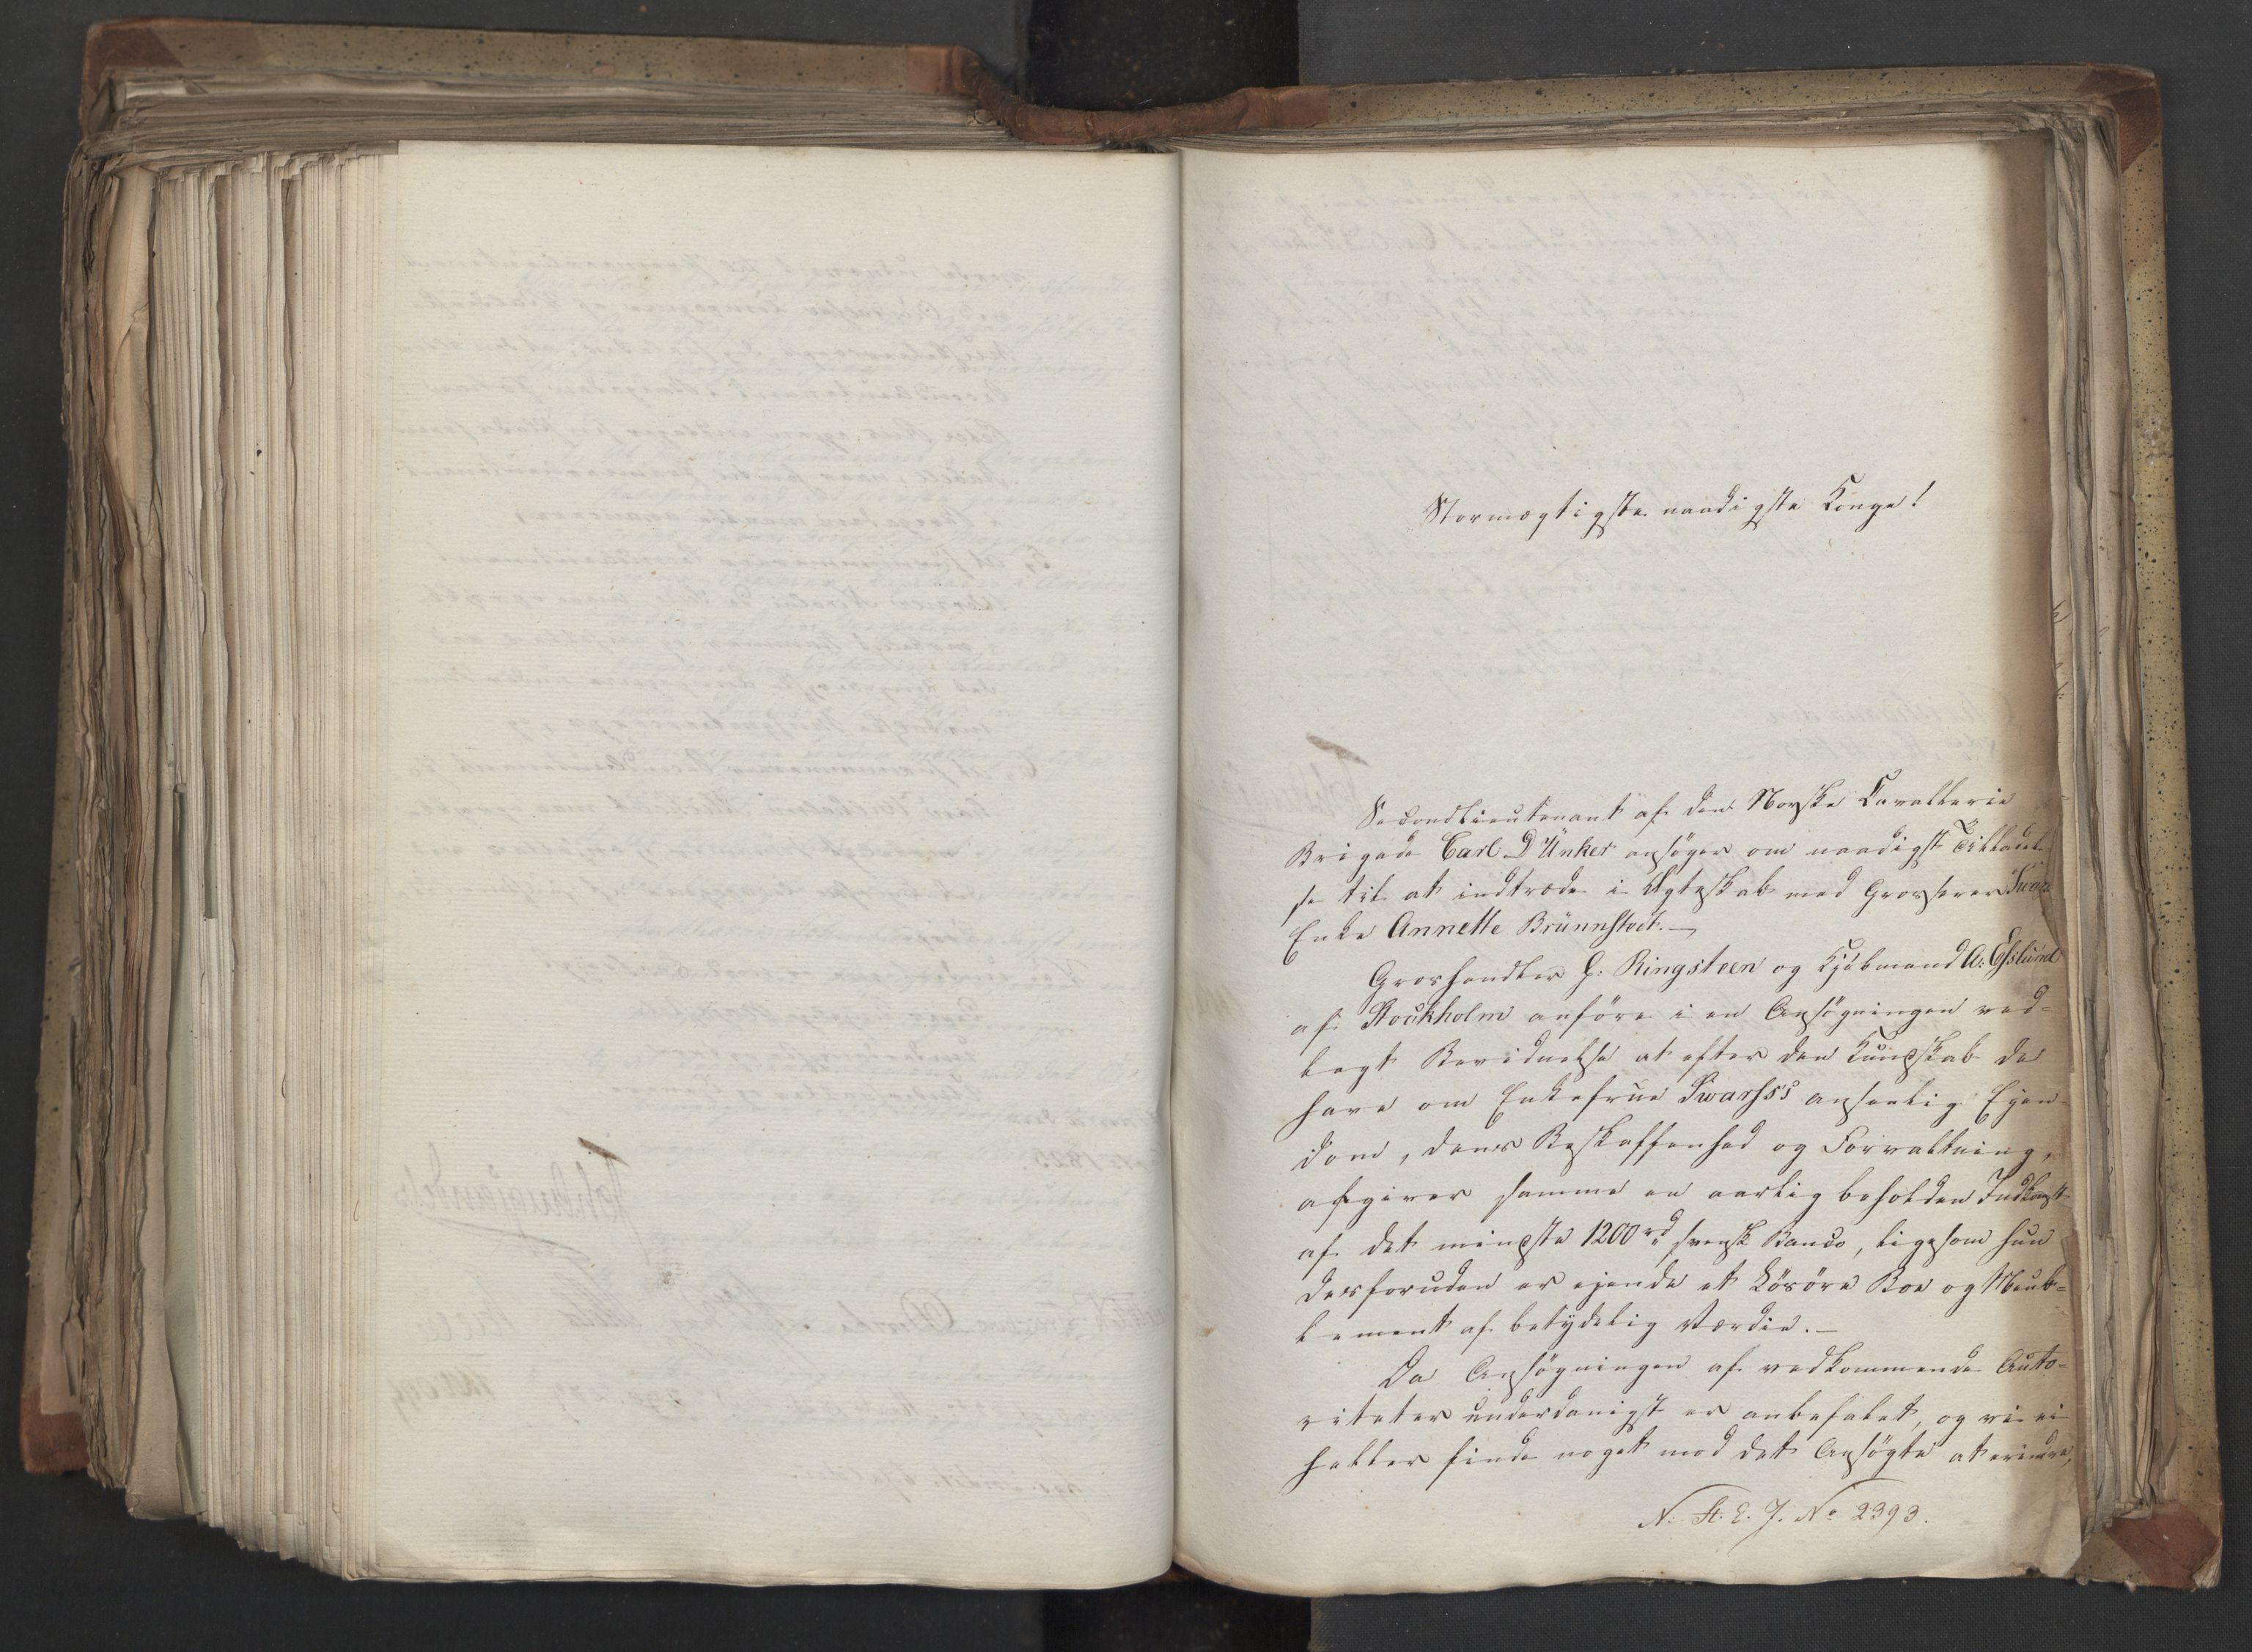 Stormægtigste naadigste Konge!
Secondlieutenant af den Norske Cavallerie
Brigade Carl Dünker ansøger om naadigst Tilladel-
se til at indtræde i Ægteskab med Grosserer
Enke Annette Brünnstedt. —
Groshandler G: Ringsteen og Kjøbmand A:
af Stockholm anføre i en Ansøgningen ved-
lagt Bevidnelse at efter den Kundskab de
have om Enkefrue Swarss's anseelig Eien-
dom, dens Beskaffenhed og Forvaltning,
afgiver samme en aarlig beholden Indkomst
af det mindste 1200 rd svensk Banco, ligesom hun
desforuden er ejende et Løsøre Boe og Meub-
lement af betydelig Værdie. —
Da Ansøgningen af vedkommende Auto-
riteter underdanigst er anbefalet, og vi ei
heller finde noget mod det Ansøgte at erindre,
N. St. E. J. No 2393.